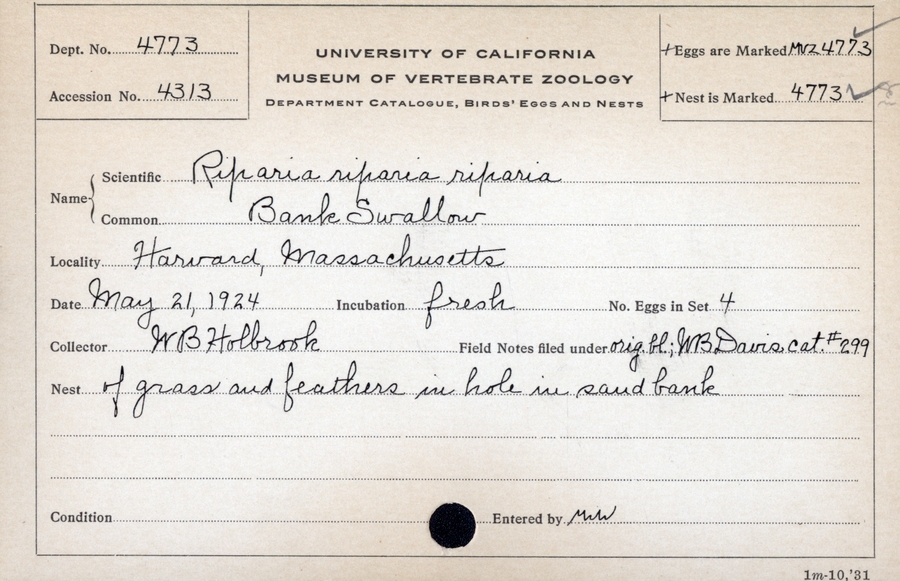 Dept. No. 4773
Accession No. 4313
UNIVERSITY OF CALIFORNIA
MUSEUM OF VERTEBRATE ZOOLOGY
DEPARTMENT CATALOGUE, BIRDS' EGGS AND NESTS
+Eggs are Marked MVZ4773
+Nest is Marked 4773
Name
Scientific Riparia riparia riparia
Common Bank Swallow
Locality Harvard, Massachusetts
Date May 21, 1924 Incubation fresh No. Eggs in Set 4
Collector WB Holbrook Field Notes filed under orig. bl.; WB Davis cat. #299
Nest of grass and feathers in hole in sand bank
Condition Entered by
1m-10,'31